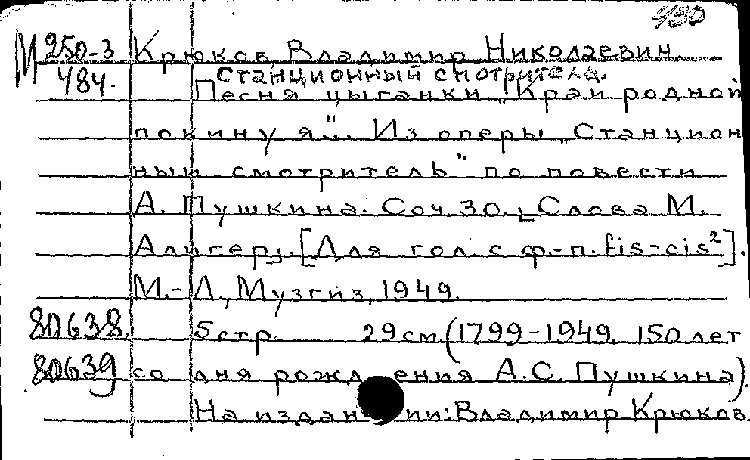 490
М 250-3 Крюков, Владимир Николаевич
484. Станционный смотритель.
Песня цыганки "Край родной
покину я". Из оперы "Станцион
ный смотритель" по повести
А. Пушкина. Соч. 30. Слова М.
Алигер. [Для гол. с ф-п. fis-cis²].
М.-Л., Музгиз, 1949.
80638. 5 стр. 29 см. (1799-1949. 150 лет
80639 со дня рождения А.С. Пушкина).
На издании: Владимир Крюков